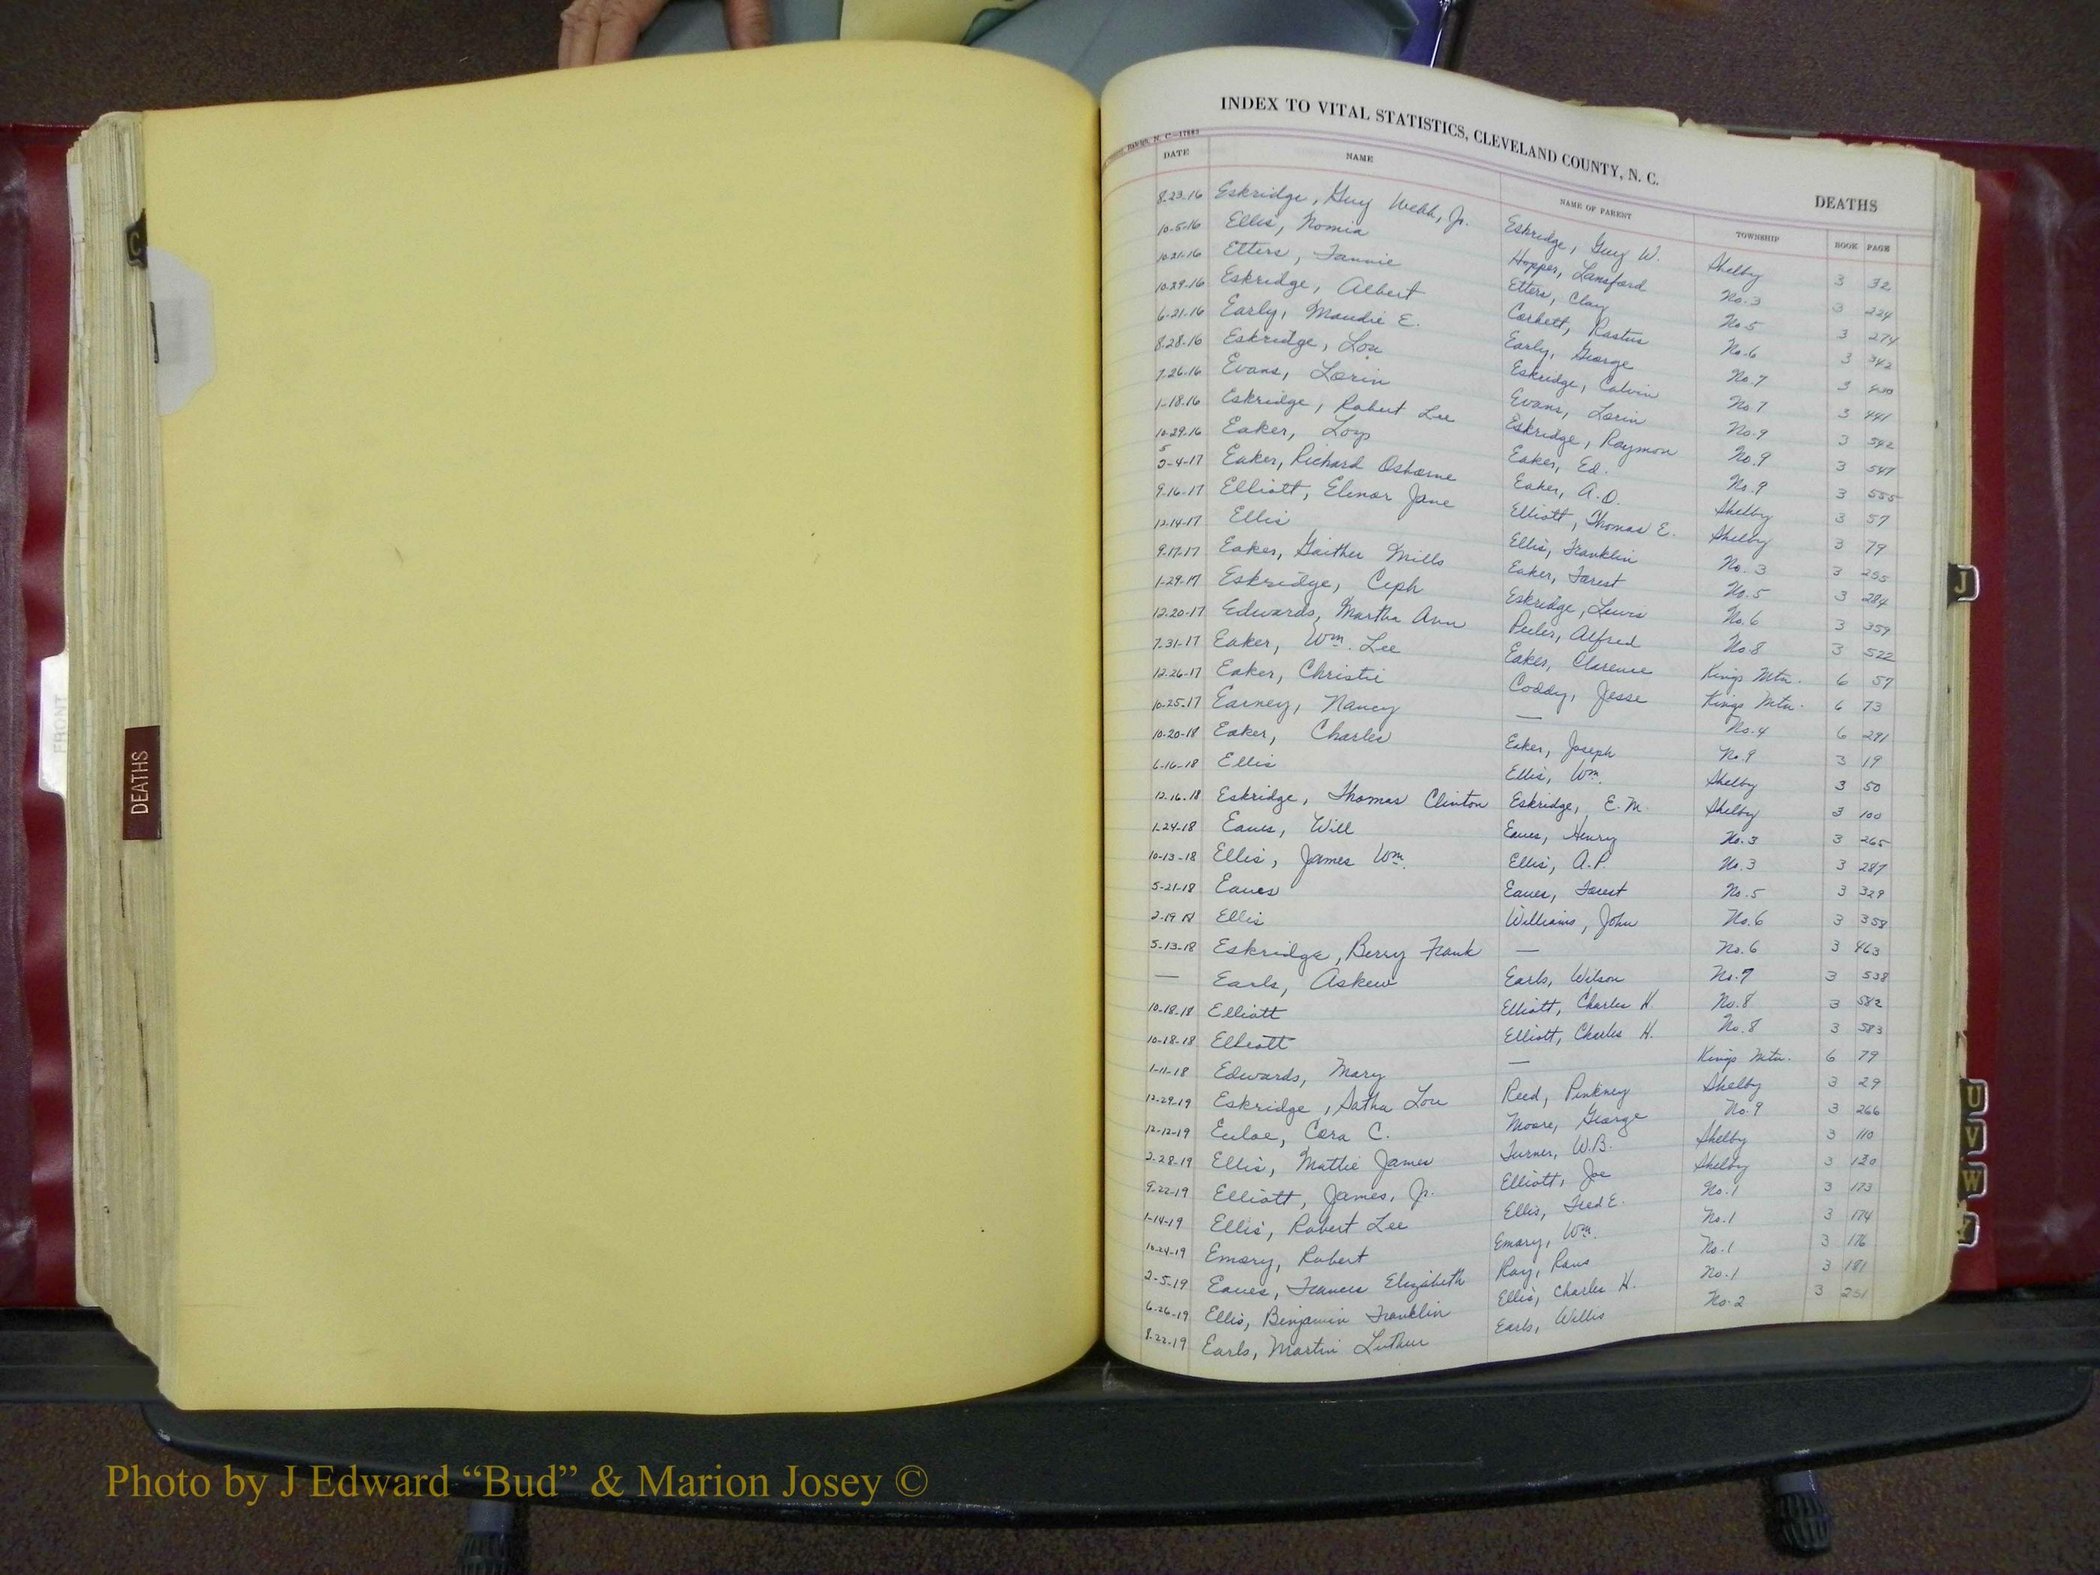 INDEX TO VITAL STATISTICS, CLEVELAND COUNTY, N. C.
DEATHS
Raleigh, N. C.—17883
DATE NAME NAME OF PARENT TOWNSHIP BOOK PAGE
8-23-16 Eskridge, Guy Webb, Jr. Eskridge, Guy W. Shelby 3 32
10-5-16 Ellis, Nomia Hopper, Lansford No. 3 3 224
10-21-16 Etters, Fannie Etters, Clay No. 5 3 274
10-29-16 Eskridge, Albert Corbett, Rastus No. 6 3 342
6-21-16 Early, Maudie E. Early, George No. 7 3 430
8-28-16 Eskridge, Lou Eskridge, Calvin No. 7 3 441
7-26-16 Evans, Lorin Evans, Lorin No. 9 3 542
1-18-16 Eskridge, Robert Lee Eskridge, Raymon No. 9 3 547
10-29-16 Eaker, Loys Eaker, Ed. No. 9 3 555
5
2-4-17 Eaker, Richard Osborne Eaker, A.O. Shelby 3 57
9-16-17 Elliott, Elenor Jane Elliott, Thomas E. Shelby 3 79
12-14-17 Ellis Ellis, Franklin No. 3 3 255
9-17-17 Eaker, Gaither Mills Eaker, Forest No. 5 3 284
1-29-17 Eskridge, Ceph Eskridge, Lewis No. 6 3 359
12-20-17 Edwards, Martha Ann Peeler, Alfred No. 8 3 522
7-31-17 Eaker, Wm. Lee Eaker, Clarence Kings Mtn. 6 57
12-26-17 Eaker, Christie Coddy, Jesse Kings Mtn. 6 73
10-25-17 Earney, Nancy — No. 4 6 291
10-20-18 Eaker, Charles Eaker, Joseph No. 9 3 19
6-16-18 Ellis Ellis, Wm. Shelby 3 50
12-16-18 Eskridge, Thomas Clinton Eskridge, E.M. Shelby 3 100
1-24-18 Eaves, Will Eaves, Henry No. 3 3 265
10-13-18 Ellis, James Wm. Ellis, A.P. No. 3 3 287
5-21-18 Eaves Eaves, Forest No. 5 3 329
2-19-18 Ellis Williams, John No. 6 3 358
5-13-18 Eskridge, Berry Frank — No. 6 3 463
— Earls, Askew Earls, Wilson No. 7 3 538
10-18-18 Elliott Elliott, Charles H. No. 8 3 582
10-18-18 Elliott Elliott, Charles H. No. 8 3 583
1-11-18 Edwards, Mary — Kings Mtn. 6 79
12-29-19 Eskridge, Satha Lou Reed, Pinkney Shelby 3 29
12-12-19 Euloe, Cora C. Moore, George No. 9 3 266
2-28-19 Ellis, Mattie James Turner, W.B. Shelby 3 110
9-22-19 Elliott, James, Jr. Elliott, Joe Shelby 3 120
1-14-19 Ellis, Robert Lee Ellis, Fred E. No. 1 3 173
10-24-19 Emory, Robert Emory, Wm. No. 1 3 174
2-5-19 Eaves, Frances Elizabeth Ray, Rans No. 1 3 176
6-26-19 Ellis, Benjamin Franklin Ellis, Charles H. No. 1 3 181
8-22-19 Earls, Martin Luther Earls, Willis No. 2 3 251
C
FRONT
DEATHS
J
U
V
W
Photo by J Edward “Bud” & Marion Josey ©